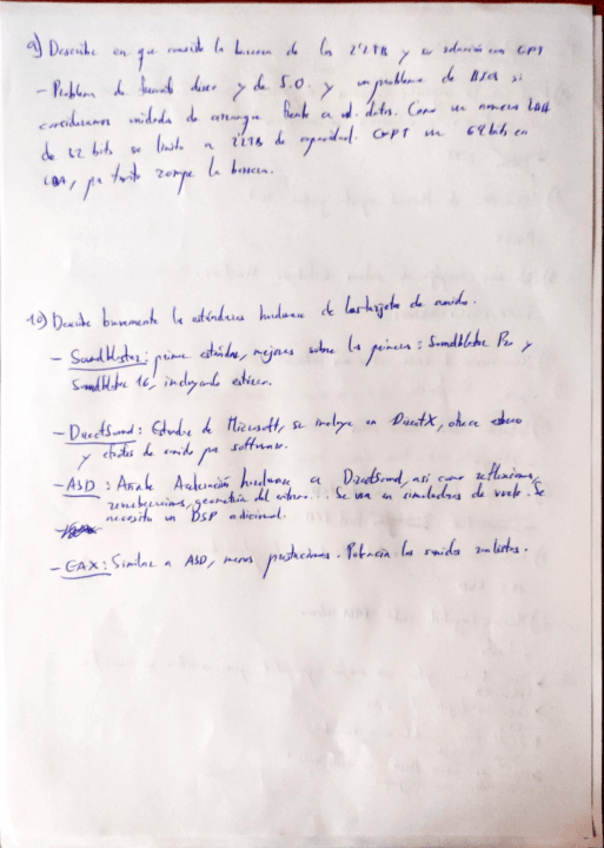 9) Describe en que consiste la barrera de los 2'2TB y su relación con GPT
- Problema de formato disco y de S.O. y un problema de BIOS si
consideramos unidades de arranque frente a ud. datos. Como un numero LBA
de 32 bits se limita a 2'2TB de capacidad. GPT un 64 bits en
LBA, por tanto rompe la barrera.
10) Describe brevemente los estándares hardware de las tarjetas de sonido.
- Soundblaster: primer estándar, mejoras sobre los primeros: Soundblaster Pro y
Soundblaster 16, incluyendo estéreo.
- DirectSound: Estandar de Microsoft, se incluye en DirectX, ofrece
y efectos de sonido por software.
- A3D: Añade Aceleración hardware a DirectSound, así como reflexiones,
reverberaciones, geometría del Se usa en simuladores de vuelo. Se
necesita un DSP adicional.
- EAX: Similar a A3D, menos prestaciones. Potencia los sonidos realistas.